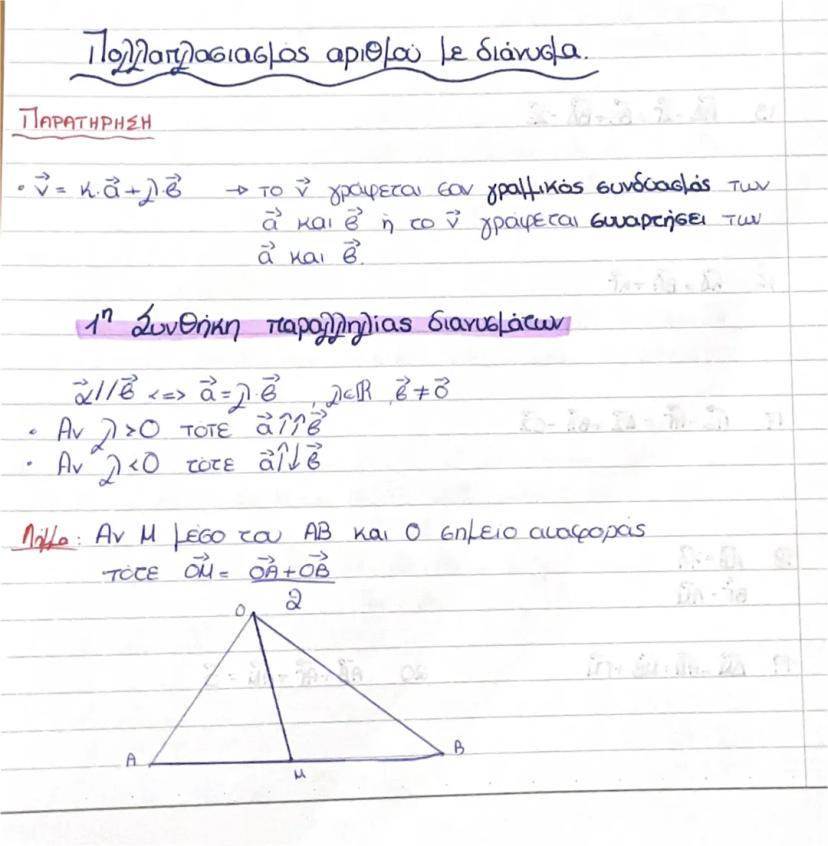 Πολλαπλασιασμός αριθμού με διάνυσμα.
ΠΑΡΑΤΗΡΗΣΗ
• v⃗ = κ·α⃗ + λ·β⃗ → το v⃗ γράφεται σαν γραμμικός συνδυασμός των
α⃗ και β⃗ ή το v⃗ γράφεται συναρτήσει των
α⃗ και β⃗.
1η Συνθήκη παραλληλίας διανυσμάτων
α⃗//β⃗ <=> α⃗ = λ·β⃗ , λ∈ℝ , β⃗ ≠ 0⃗
• Αν λ>0 τότε α⃗↑↑β⃗
• Αν λ<0 τότε α⃗↑↓β⃗
Λήμμα: Αν Μ μέσο του ΑΒ και Ο σημείο αναφοράς
τότε ΟΜ⃗ = ΟΑ⃗ + ΟΒ⃗
2
Ο
Α Μ Β